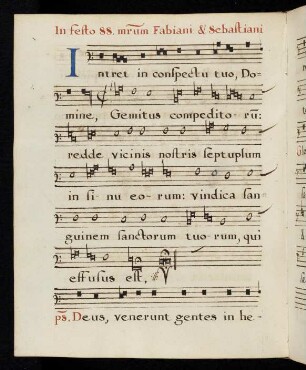 In festo SS. mr̃um Fabiani & Sebastiani
Intret in conspectu tuo, Do-
mine, Gemitus compedito-rũ:
redde vicinis nostris septuplum
in si-nu eo-rum: vindica san-
guinem sanctorum tuo-rum, qui
effusus est,
ps̃. Deus, venerunt gentes in he-